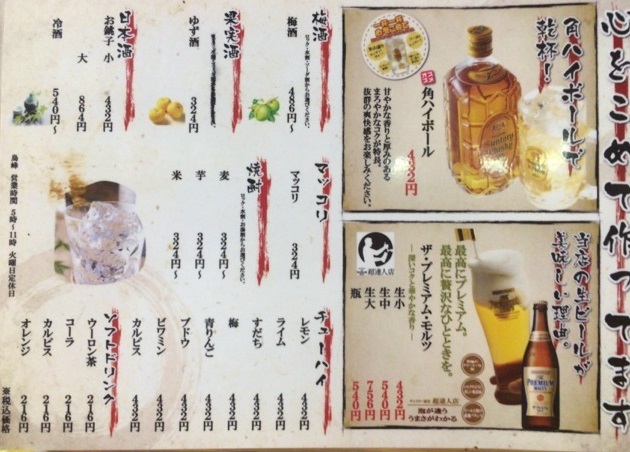 心をこめて作ってます
角ハイボールで
乾杯！
角ハイボール
432円
甘やかな香りと厚みのある
まろやかなコクが特長。
抜群の爽快感をお楽しみください。
Suntory
Whisky
当店の生ビールが
美味しい理由。
最高にプレミアム。
最高に贅沢なひとときを。
ザ・プレミアム・モルツ
〜深いコクと華やかな香り〜
超達人店
生小 432円
生中 540円
生大 756円
瓶 540円
超達人店
泡が違う
うまさがわかる
PREMIUM
梅酒
梅酒 486円〜
果実酒
ゆず酒 324円
日本酒
お銚子 小 432円
大 864円
冷酒 540円〜
マッコリ
マッコリ 324円
焼酎
麦 324円〜
芋 324円〜
米 324円〜
鳥峰 営業時間 5時〜11時 火曜日定休日
チューハイ
レモン 432円
ライム 432円
すだち 432円
梅 432円
青りんご 432円
ブドウ 432円
ビワミン 432円
カルピス 432円
ソフトドリンク
ウーロン茶 216円
コーラ 216円
カルピス 216円
オレンジ 216円
※税込価格